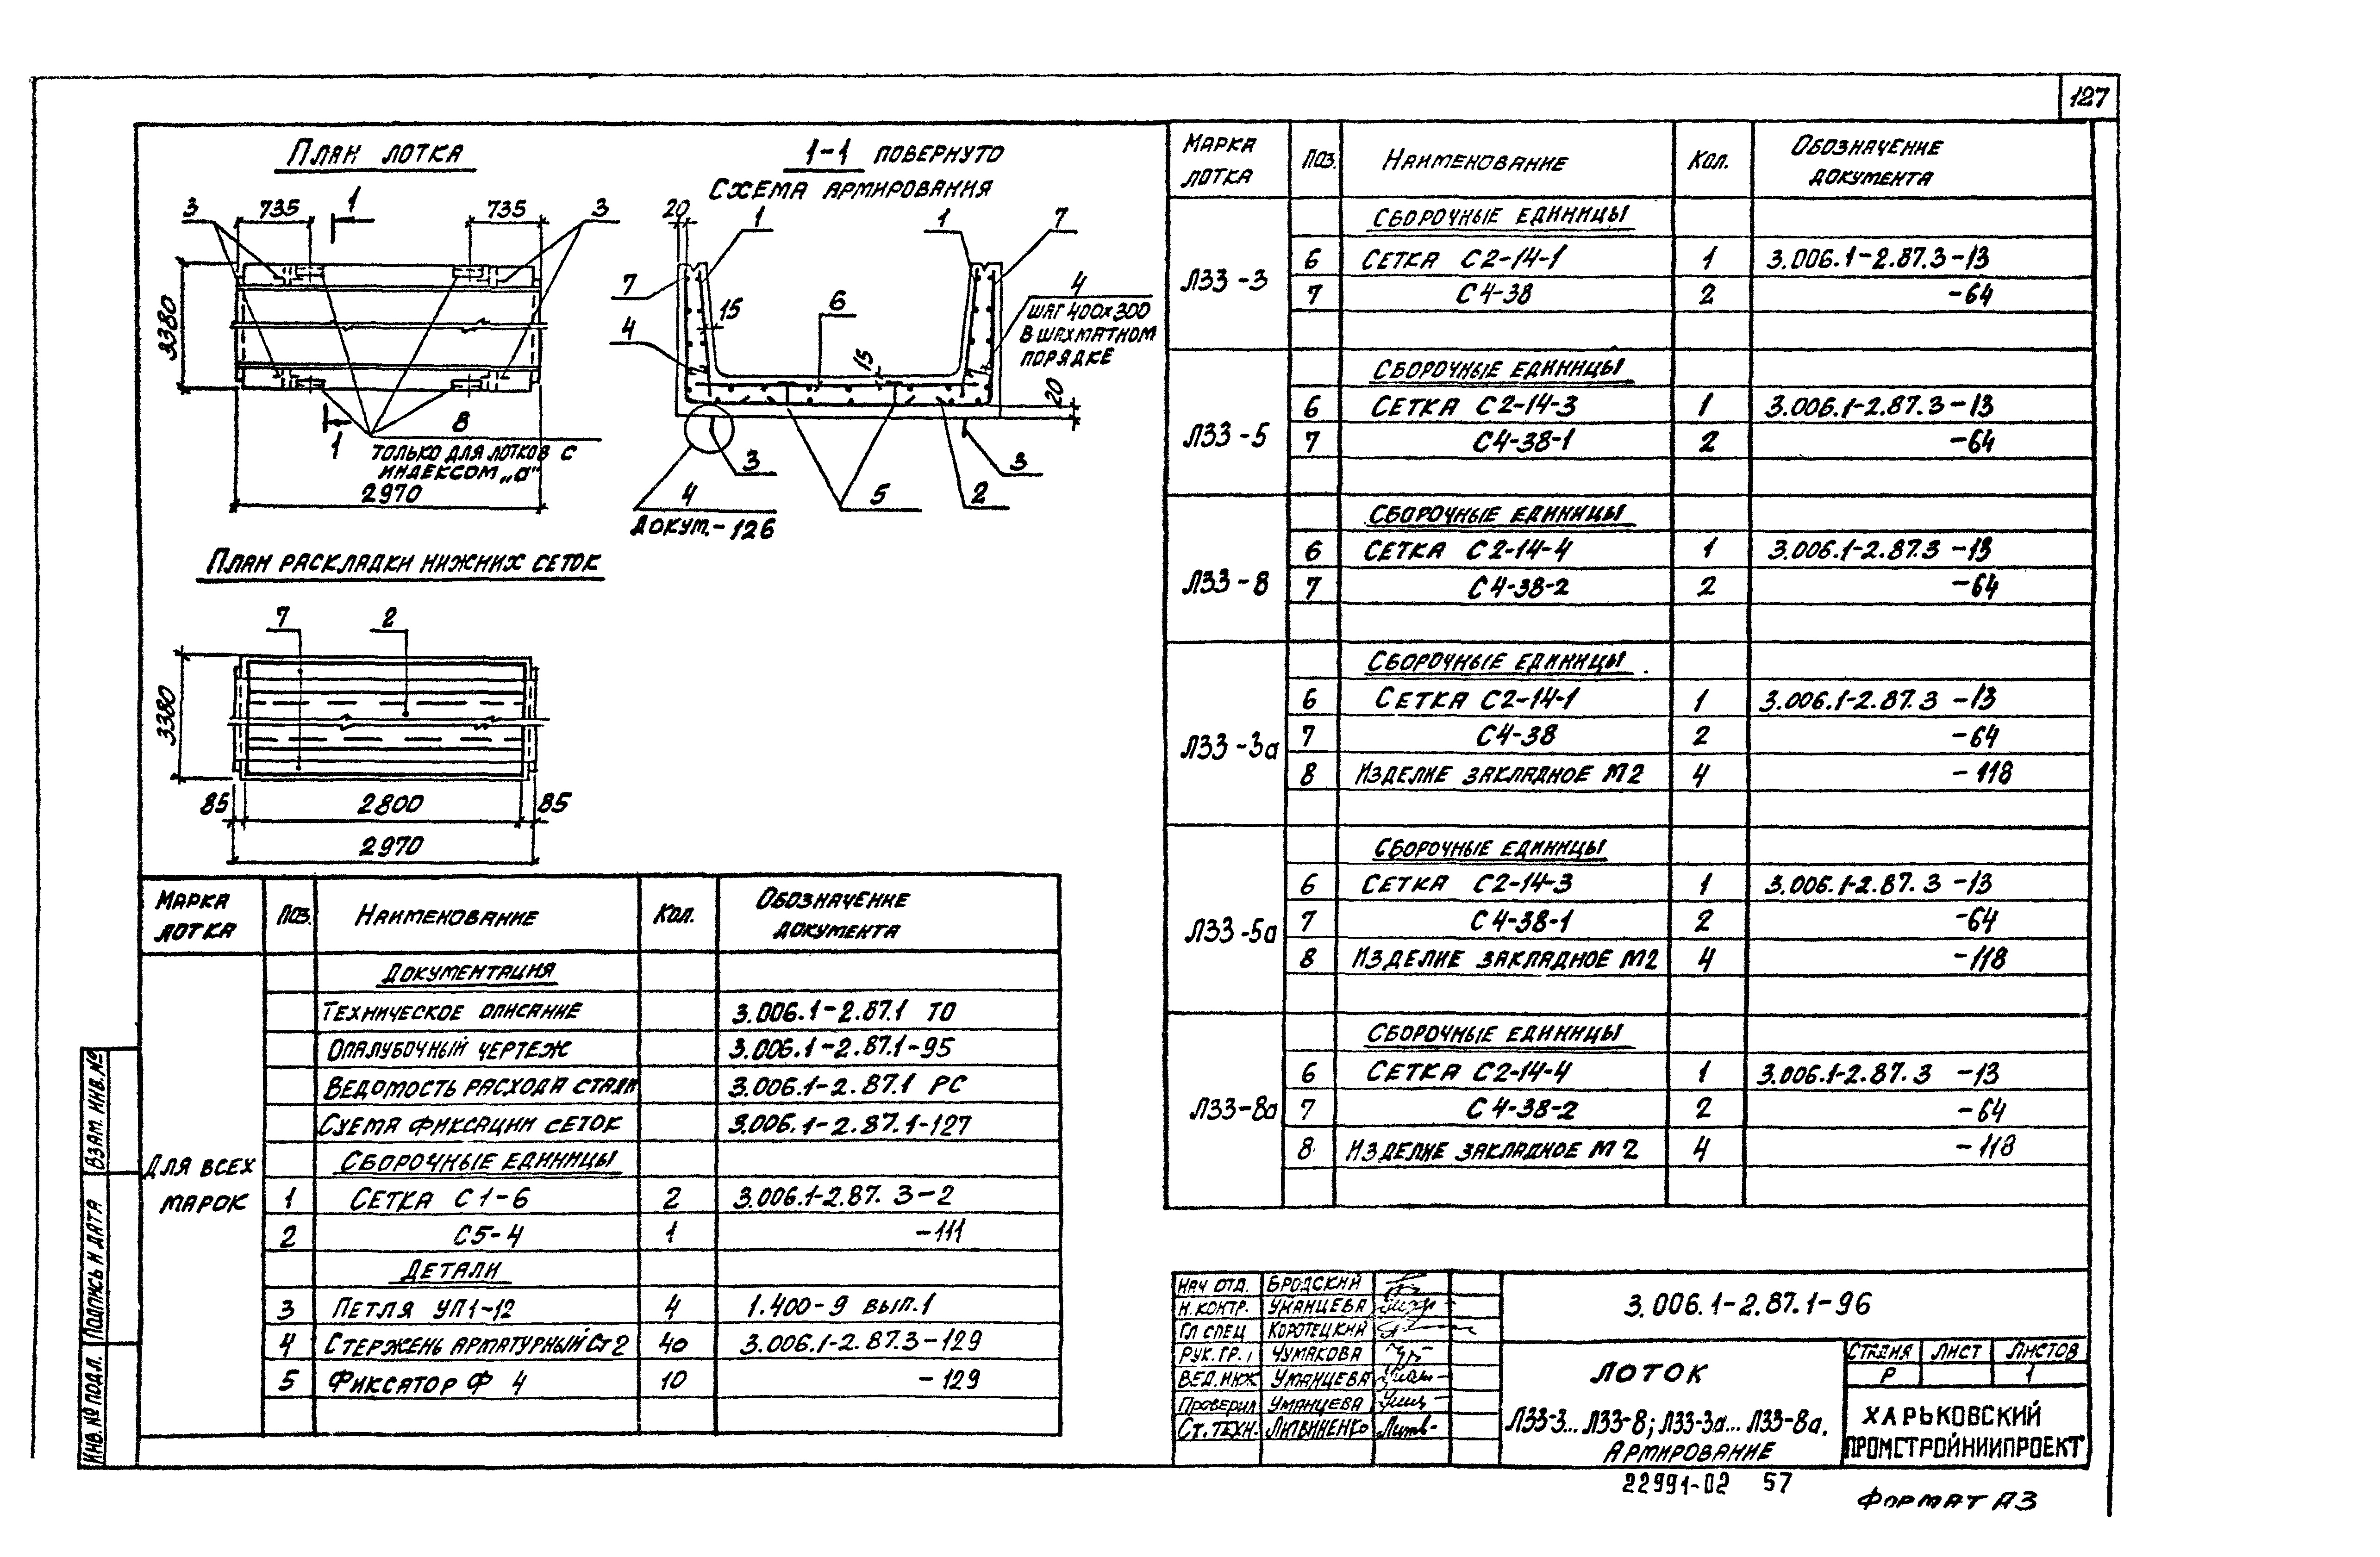 127
План лотка
1-1 повернуто
Схема армирования
3 735 1 735 3
3380
8
только для лотков с
индексом „а"
1
2970
20 1 1 7
7 4 15 6 15
4
шаг 400х300
в шахматном
порядке
20
3 3
4 5 2
Докум.-126
План раскладки нижних сеток
7 2
3380
85 2800 85
2970
Марка лотка Поз. Наименование Кол. Обозначение документа
Для всех марок
Документация
Техническое описание 3.006.1-2.87.1 ТО
Опалубочный чертеж 3.006.1-2.87.1-95
Ведомость расхода стали 3.006.1-2.87.1 РС
Схема фиксации сеток 3.006.1-2.87.1-127
Сборочные единицы
1 Сетка С1-6 2 3.006.1-2.87.3-2
2 С5-4 1 -111
Детали
3 Петля УП1-12 4 1.400-9 вып.1
4 Стержень арматурный Ст2 40 3.006.1-2.87.3-129
5 Фиксатор Ф 4 10 -129
Марка лотка Поз. Наименование Кол. Обозначение документа
Л33-3
Сборочные единицы
6 Сетка С2-14-1 1 3.006.1-2.87.3-13
7 С4-38 2 -64
Л33-5
Сборочные единицы
6 Сетка С2-14-3 1 3.006.1-2.87.3-13
7 С4-38-1 2 -64
Л33-8
Сборочные единицы
6 Сетка С2-14-4 1 3.006.1-2.87.3-13
7 С4-38-2 2 -64
Л33-3а
Сборочные единицы
6 Сетка С2-14-1 1 3.006.1-2.87.3-13
7 С4-38 2 -64
8 Изделие закладное М2 4 -118
Л33-5а
Сборочные единицы
6 Сетка С2-14-3 1 3.006.1-2.87.3-13
7 С4-38-1 2 -64
8 Изделие закладное М2 4 -118
Л33-8а
Сборочные единицы
6 Сетка С2-14-4 1 3.006.1-2.87.3-13
7 С4-38-2 2 -64
8 Изделие закладное М2 4 -118
Нач отд. Бродский
Н.контр. Уманцева
Гл спец Коротецкий
Рук.гр. Чумакова
Вед.инж Уманцева
Проверил Уманцева
Ст.техн. Литвиненко
3.006.1-2.87.1-96
Лоток
Л33-3... Л33-8; Л33-3а... Л33-8а.
Армирование
Стадия Лист Листов
Р 1
Харьковский
Промстройниипроект
22991-02 57
Формат А3
Инв.№ подл. Подпись и дата Взам. инв.№